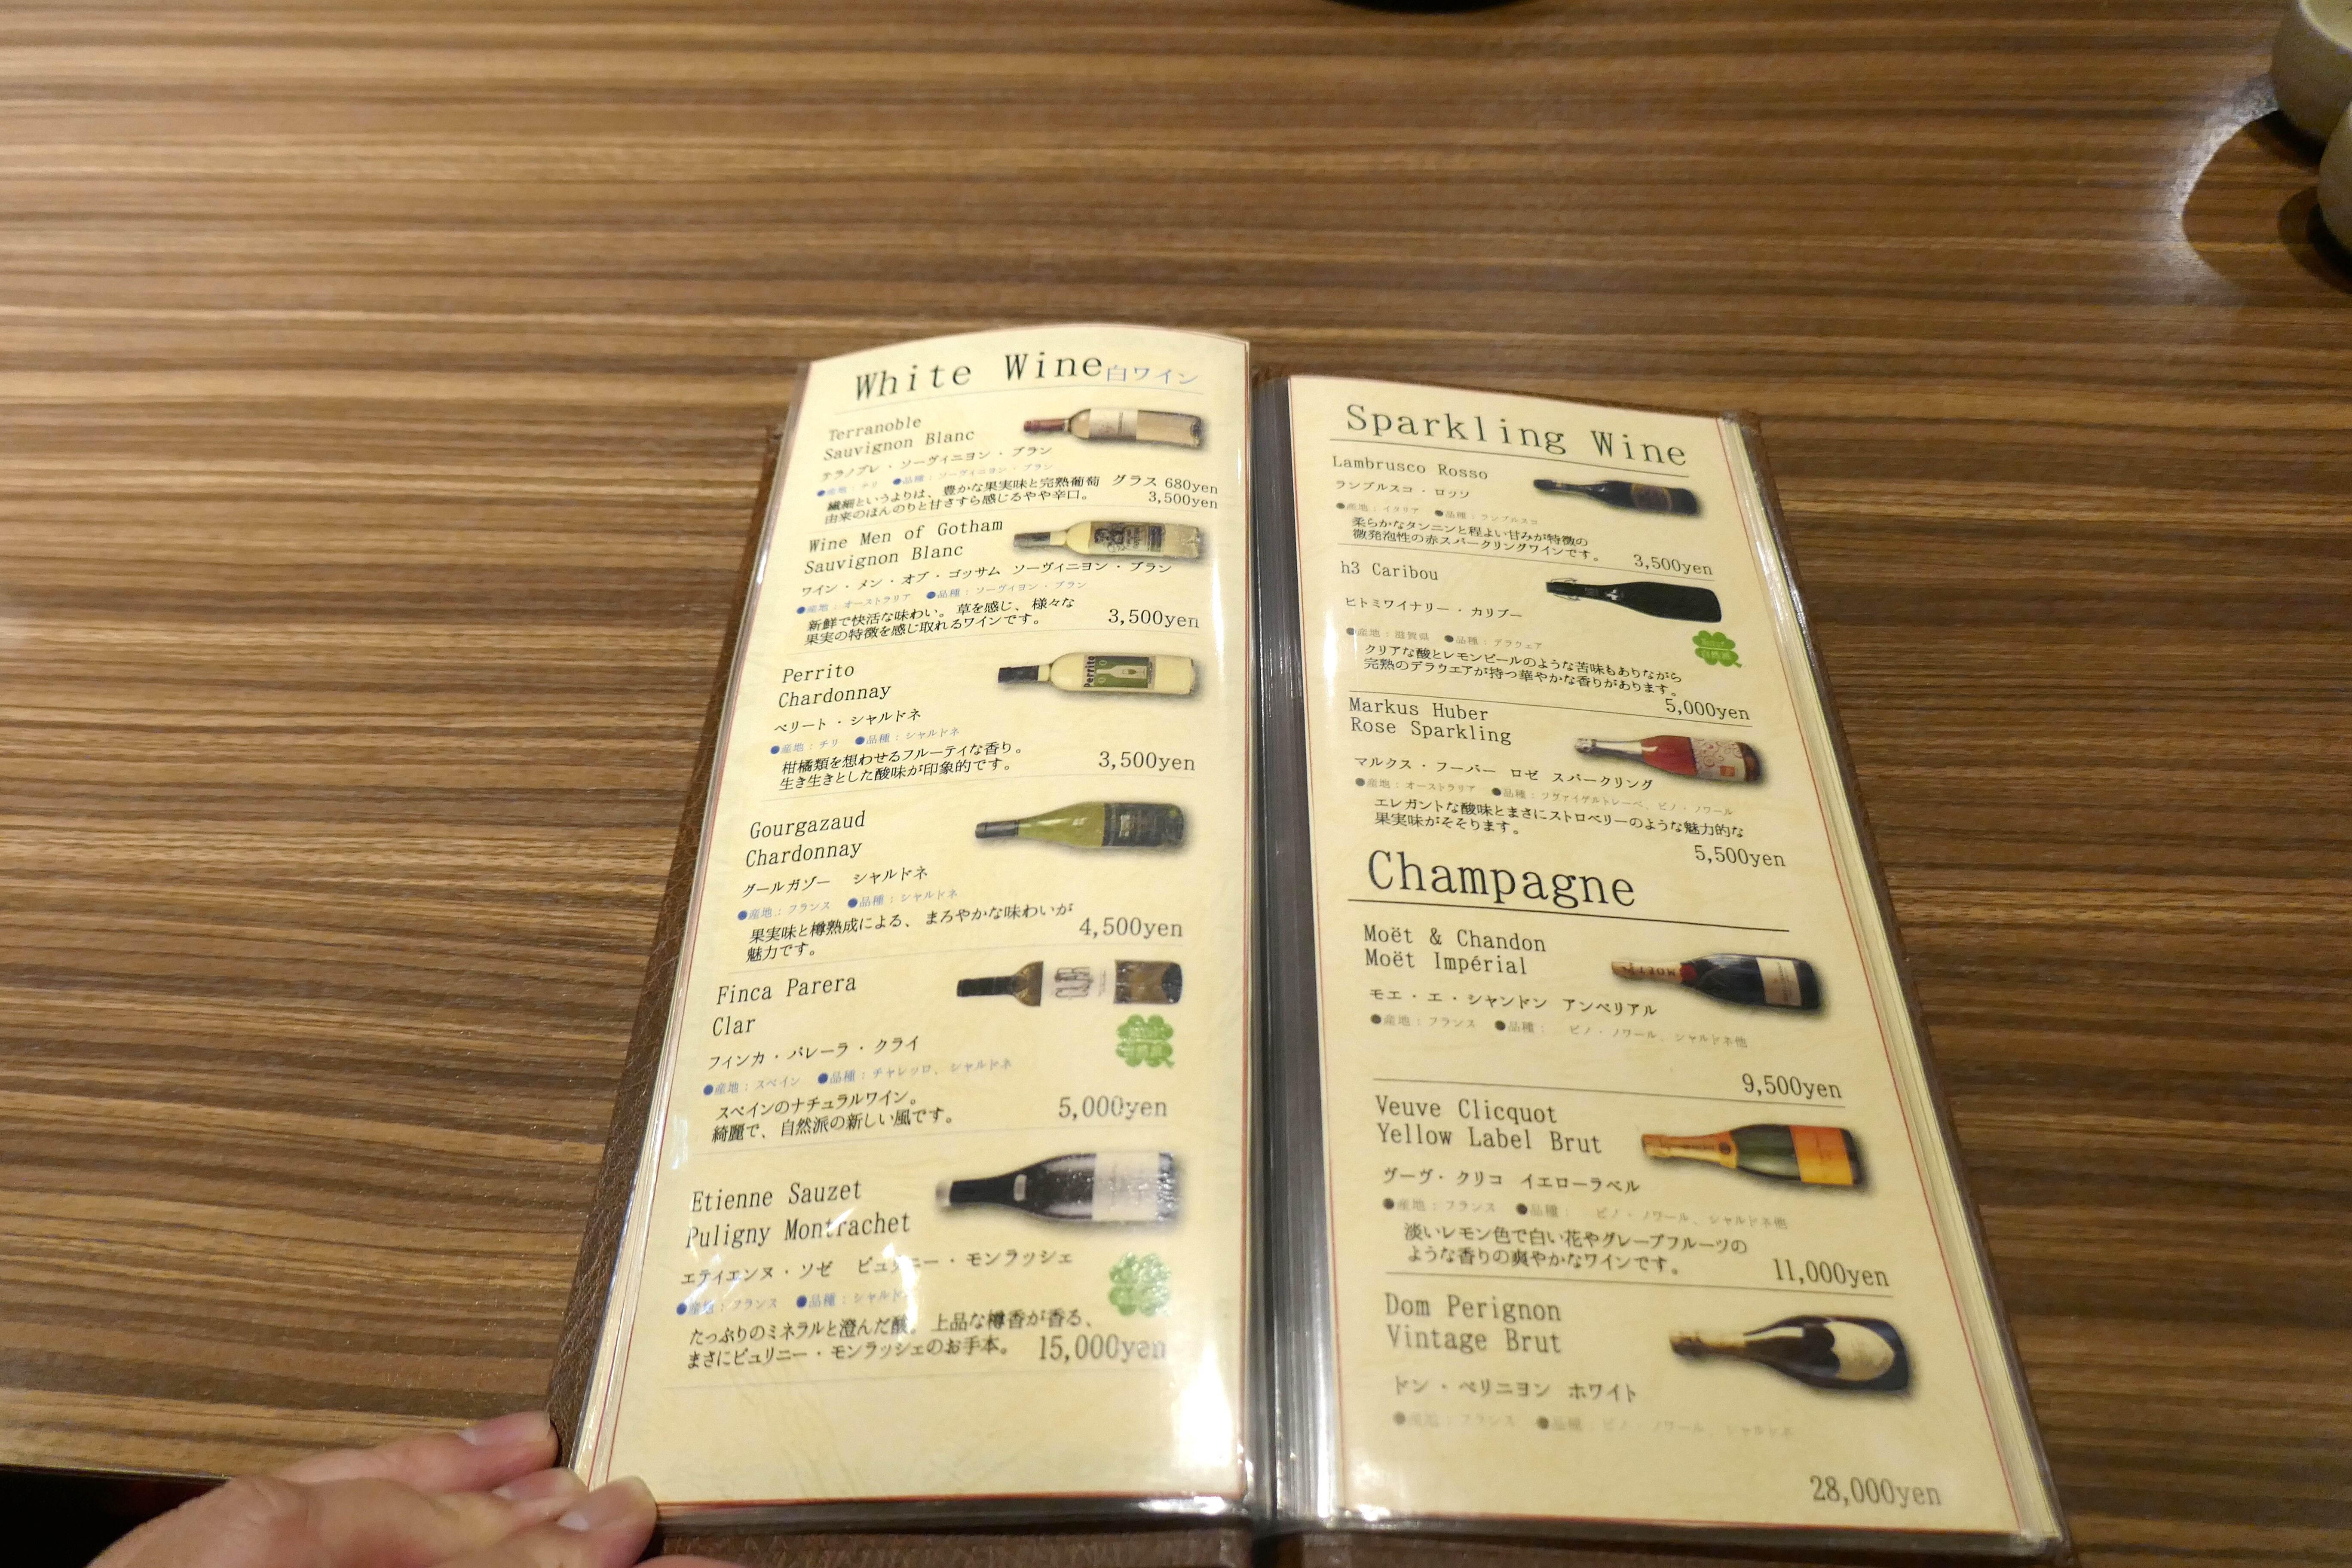 White Wine白ワイン
Terranoble
Sauvignon Blanc
テラノブレ・ソーヴィニヨン・ブラン
●産地：チリ ●品種：ソーヴィニヨン・ブラン
繊細というよりは、豊かな果実味と完熟葡萄 グラス 680yen
由来のほんのりと甘さすら感じるやや辛口。 3,500yen
Wine Men of Gotham
Sauvignon Blanc
ワイン・メン・オブ・ゴッサム ソーヴィニヨン・ブラン
●産地：オーストラリア ●品種：ソーヴィヨン・ブラン
新鮮で快活な味わい。草を感じ、様々な
果実の特徴を感じ取れるワインです。 3,500yen
Perrito
Chardonnay
Perrito
ペリート・シャルドネ
●産地：チリ ●品種：シャルドネ
柑橘類を想わせるフルーティな香り。
生き生きとした酸味が印象的です。 3,500yen
Gourgazaud
Chardonnay
グールガゾー シャルドネ
●産地：フランス ●品種：シャルドネ
果実味と樽熟成による、まろやかな味わいが
魅力です。 4,500yen
Finca Parera
Clar
フィンカ・パレーラ・クライ
●産地：スペイン ●品種：チャレッロ、シャルドネ
スペインのナチュラルワイン。
綺麗で、自然派の新しい風です。 5,000yen
Etienne Sauzet
Puligny Montrachet
エティエンヌ・ソゼ ピュリニー・モンラッシェ
●産地：フランス ●品種：シャルド
たっぷりのミネラルと澄んだ酸。上品な樽香が香る、
まさにピュリニー・モンラッシェのお手本。 15,000yen
Sparkling Wine
Lambrusco Rosso
ランブルスコ・ロッソ
●産地：イタリア ●品種：ランブルスコ
柔らかなタンニンと程よい甘みが特徴の
微発泡性の赤スパークリングワインです。 3,500yen
h3 Caribou
ヒトミワイナリー・カリブー
●産地：滋賀県 ●品種：デラウェア
自然派
クリアな酸とレモンピールのような苦味もありながら
完熟のデラウエアが持つ華やかな香りがあります。
5,000yen
Markus Huber
Rose Sparkling
マルクス・フーバー ロゼ スパークリング
●産地：オーストラリア ●品種：ツヴァイゲルトレーベ、ピノ・ノワール
エレガントな酸味とまさにストロベリーのような魅力的な
果実味がそそります。
5,500yen
Champagne
Moët & Chandon
Moët Impérial
MOËT
モエ・エ・シャンドン アンペリアル
●産地：フランス ●品種： ピノ・ノワール、シャルドネ他
9,500yen
Veuve Clicquot
Yellow Label Brut
ヴーヴ・クリコ イエローラベル
●産地：フランス ●品種： ピノ・ノワール、シャルドネ他
淡いレモン色で白い花やグレープフルーツの
ような香りの爽やかなワインです。 11,000yen
Dom Perignon
Vintage Brut
ドン・ペリニヨン ホワイト
●産地：フランス ●品種：ピノ・ノワール、シャルドネ
28,000yen